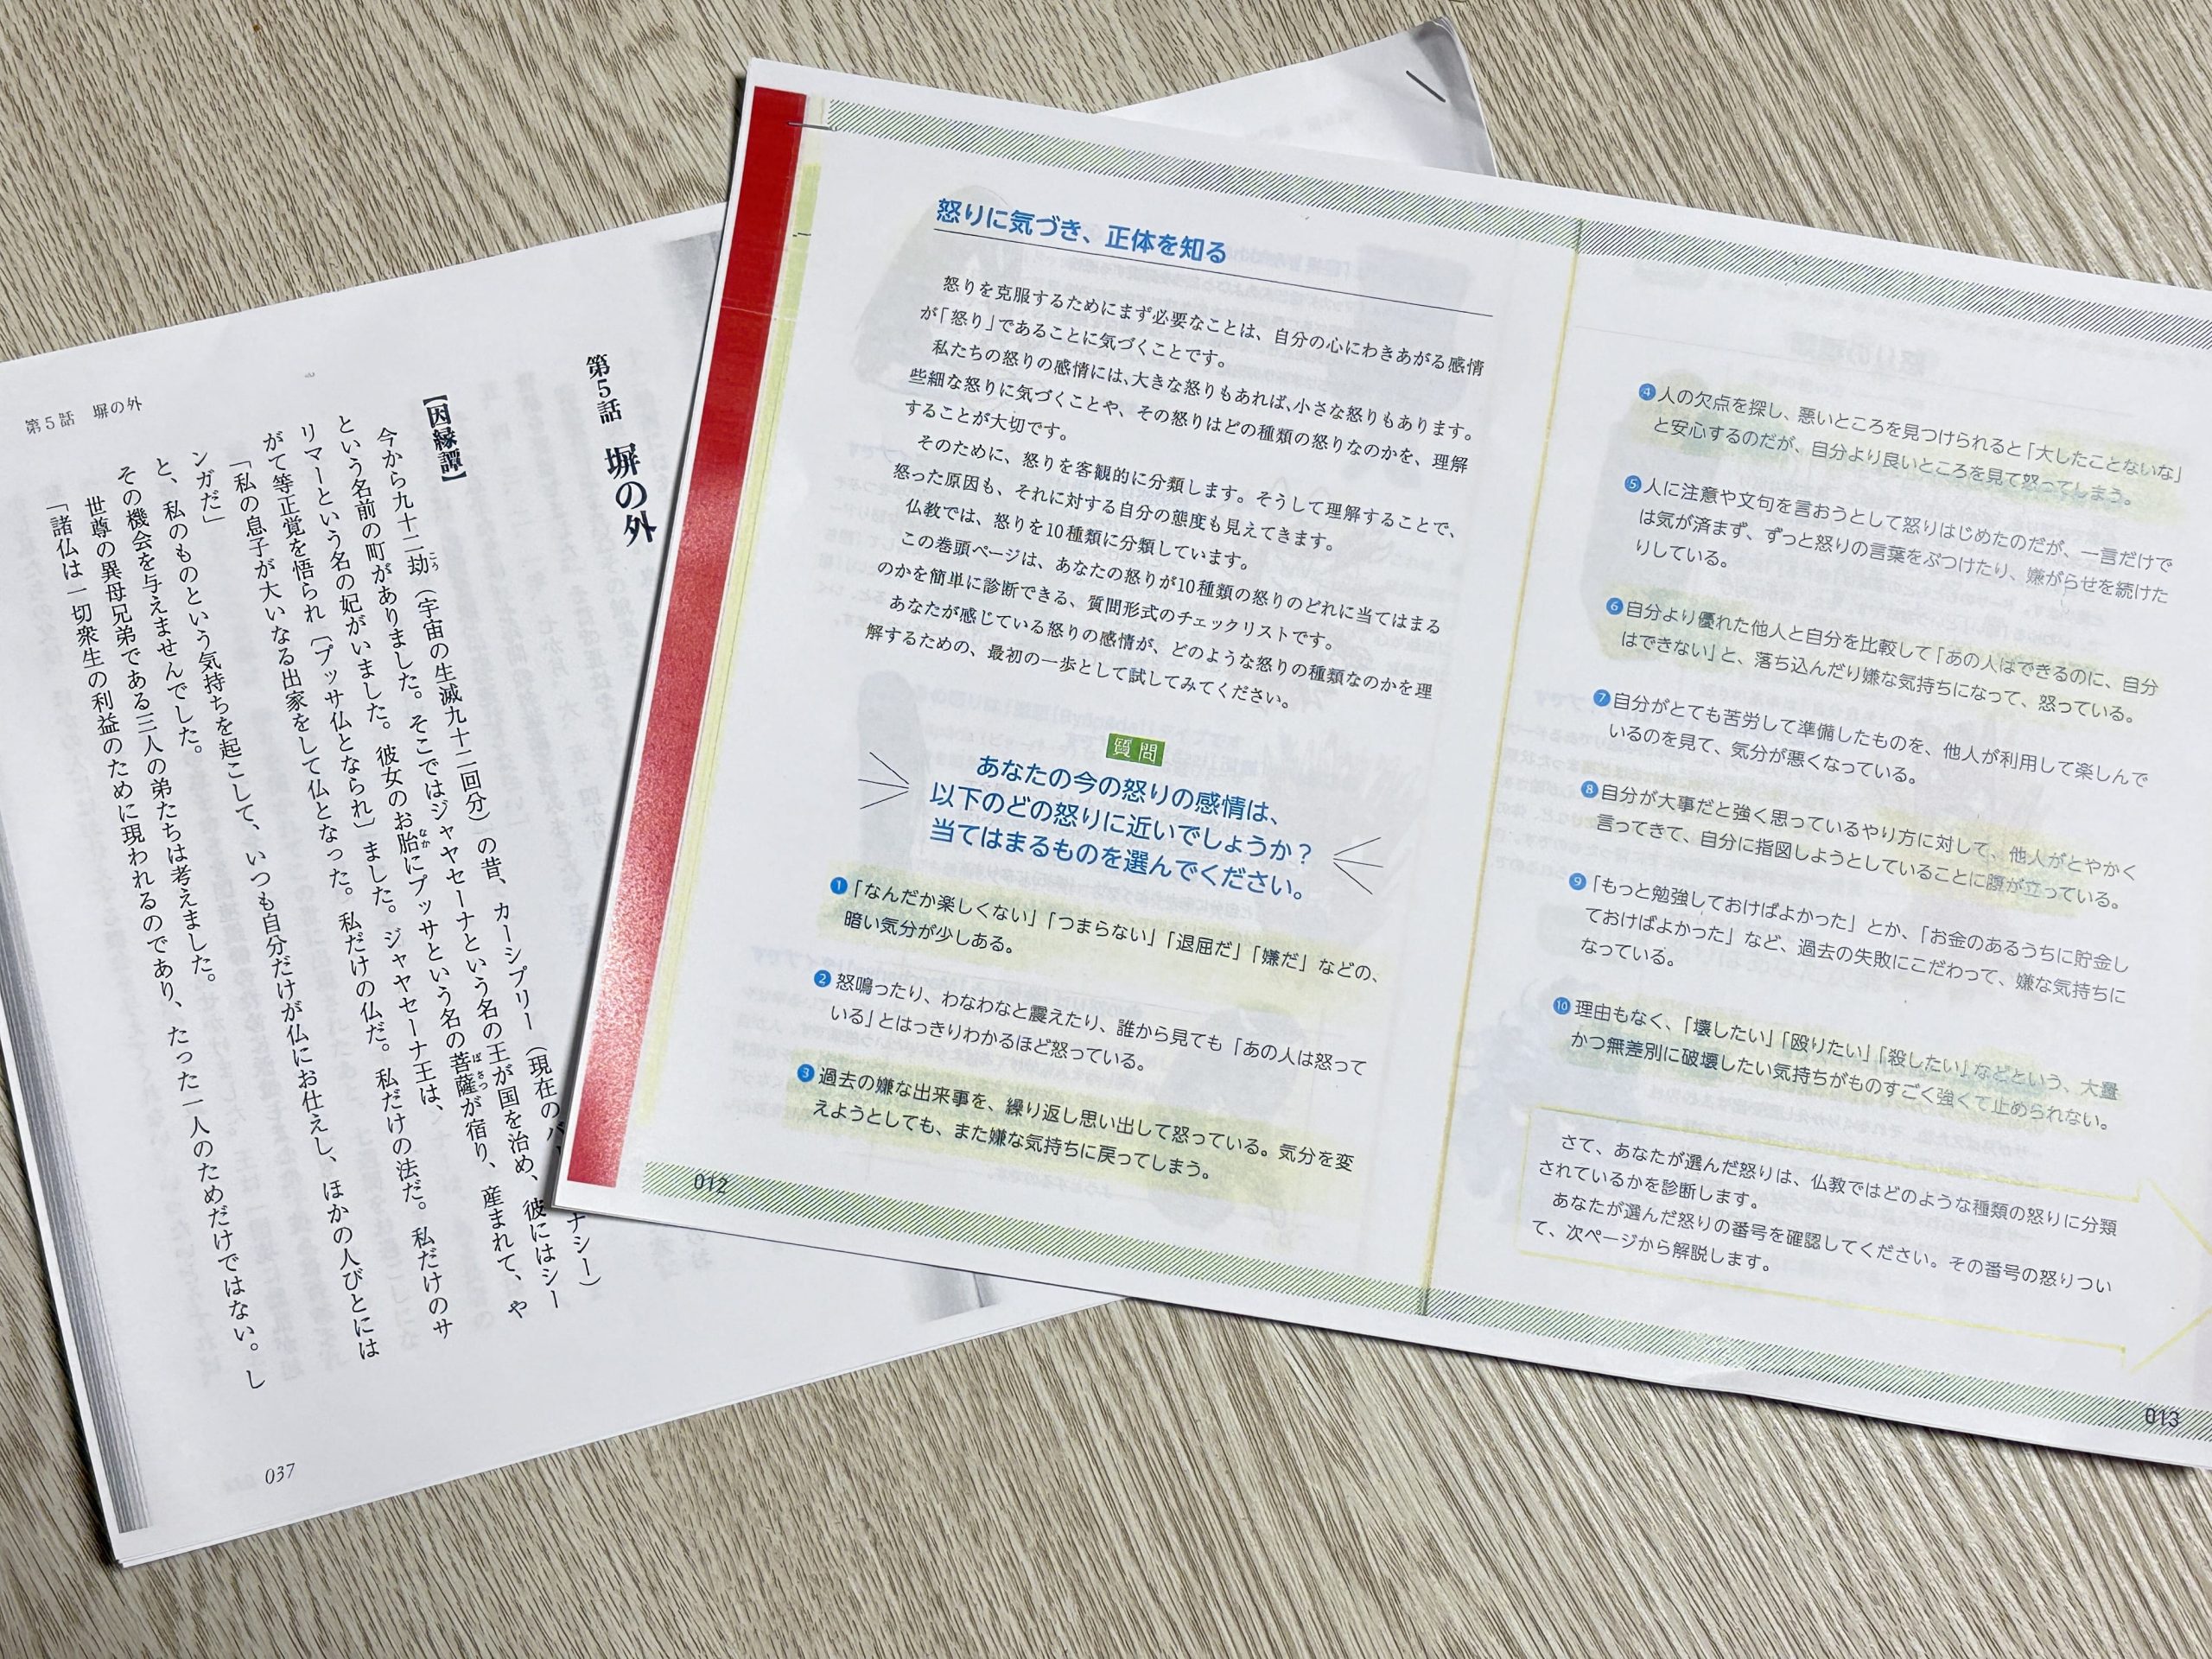 怒りに気づき、正体を知る
怒りを克服するためにまず必要なことは、自分の心にわきあがる感情
が「怒り」であることに気づくことです。
私たちの怒りの感情には、大きな怒りもあれば、小さな怒りもあります。
些細な怒りに気づくことや、その怒りはどの種類の怒りなのかを、理解
することが大切です。
そのために、怒りを客観的に分類します。そうして理解することで、
怒った原因も、それに対する自分の態度も見えてきます。
仏教では、怒りを10種類に分類しています。
この巻頭ページは、あなたの怒りが10種類の怒りのどれに当てはまる
のかを簡単に診断できる、質問形式のチェックリストです。
あなたが感じている怒りの感情が、どのような怒りの種類なのかを理
解するための、最初の一歩として試してみてください。
質問
あなたの今の怒りの感情は、
以下のどの怒りに近いでしょうか？
当てはまるものを選んでください。
❶「なんだか楽しくない」「つまらない」「退屈だ」「嫌だ」などの、
暗い気分が少しある。
❷怒鳴ったり、わなわなと震えたり、誰から見ても「あの人は怒って
いる」とはっきりわかるほど怒っている。
❸過去の嫌な出来事を、繰り返し思い出して怒っている。気分を変
えようとしても、また嫌な気持ちに戻ってしまう。
012
❹人の欠点を探し、悪いところを見つけられると「大したことないな」
と安心するのだが、自分より良いところを見て怒ってしまう。
❺人に注意や文句を言おうとして怒りはじめたのだが、一言だけで
は気が済まず、ずっと怒りの言葉をぶつけたり、嫌がらせを続けた
りしている。
❻自分より優れた他人と自分を比較して「あの人はできるのに、自分
はできない」と、落ち込んだり嫌な気持ちになって、怒っている。
❼自分がとても苦労して準備したものを、他人が利用して楽しんで
いるのを見て、気分が悪くなっている。
❽自分が大事だと強く思っているやり方に対して、他人がとやかく
言ってきて、自分に指図しようとしていることに腹が立っている。
❾「もっと勉強しておけばよかった」とか、「お金のあるうちに貯金し
ておけばよかった」など、過去の失敗にこだわって、嫌な気持ちに
なっている。
❿理由もなく、「壊したい」「殴りたい」「殺したい」などという、大量
かつ無差別に破壊したい気持ちがものすごく強くて止められない。
さて、あなたが選んだ怒りは、仏教ではどのような種類の怒りに分類
されているかを診断します。
あなたが選んだ怒りの番号を確認してください。その番号の怒りつい
て、次ページから解説します。
013
第5話　塀の外
【因縁譚】
今から九十二劫（宇宙の生滅九十二回分）の昔、カーシプリー（現在のバ　ナシー）
という名前の町がありました。そこではジャヤセーナという名の王が国を治め、彼にはシー
リマーという名の妃がいました。彼女のお胎にプッサという名の菩薩が宿り、産まれて、や
がて等正覚を悟られ〔プッサ仏となられ〕ました。ジャヤセーナ王は、
「私の息子が大いなる出家をして仏となった。私だけの仏だ。私だけの法だ。私だけのサ
ンガだ」
と、私のものという気持ちを起こして、いつも自分だけが仏にお仕えし、ほかの人びとには
その機会を与えませんでした。
世尊の異母兄弟である三人の弟たちは考えました。
「諸仏は一切衆生の利益のために現われるのであり、たった一人のためだけではない。し
第5話　塀の外
037